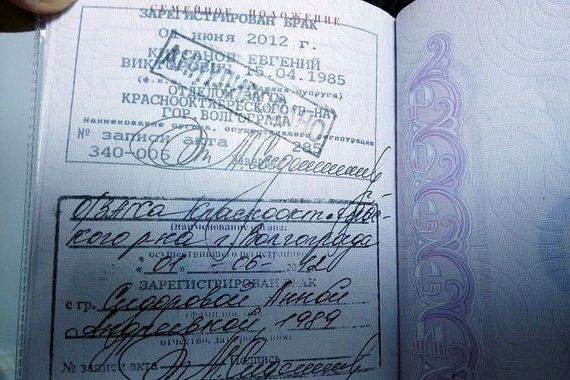 СЕМЕЙНОЕ ПОЛОЖЕНИЕ
ЗАРЕГИСТРИРОВАН БРАК
июня 2012 г.
ЕВГЕНИЙ
15.04.1985
супруга)
ОТДЕЛОМ ЗАГСА
КРАСНООКТЯБРЬСКОГО Р-НА
ГОР. ВОЛГОГРАДА
наименование органа, осуществившего регистрации
№ записи акта 285
340-006
О/ЗАГСа Краснооктябрь-
(наименование органа)
ского р-на г. Волгограда
осуществившего регистрацию
«01» 06
ЗАРЕГИСТРИРОВАН БРАК
с гр. Сидоровой Анной
Андреевной, 1989
отчество, дата рождения
№ записи акта Подпись